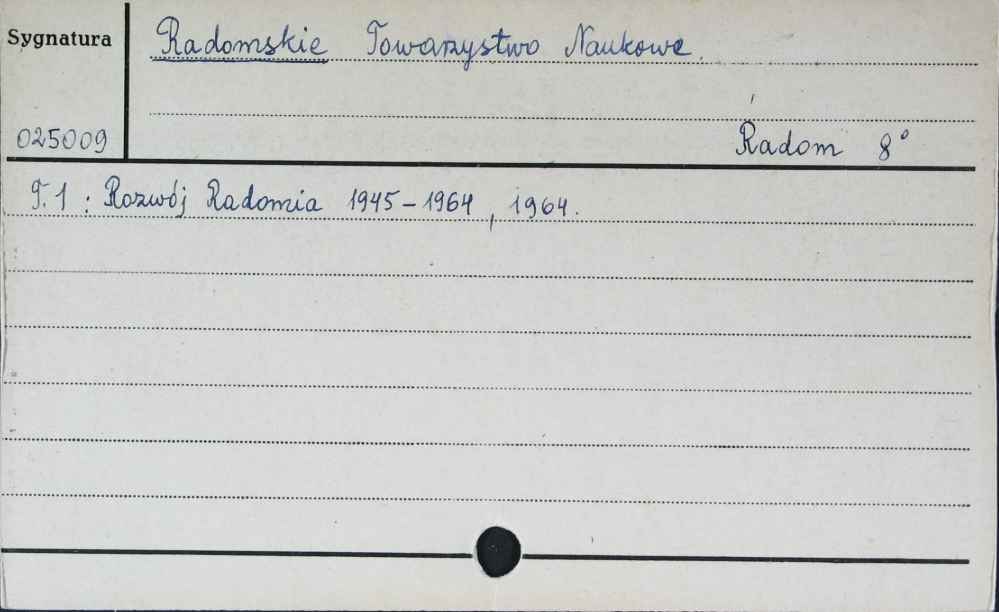 Sygnatura
Radomskie Towarzystwo Naukowe.
025009
Radom 8°
T. 1 : Rozwój Radomia 1945-1964, 1964.